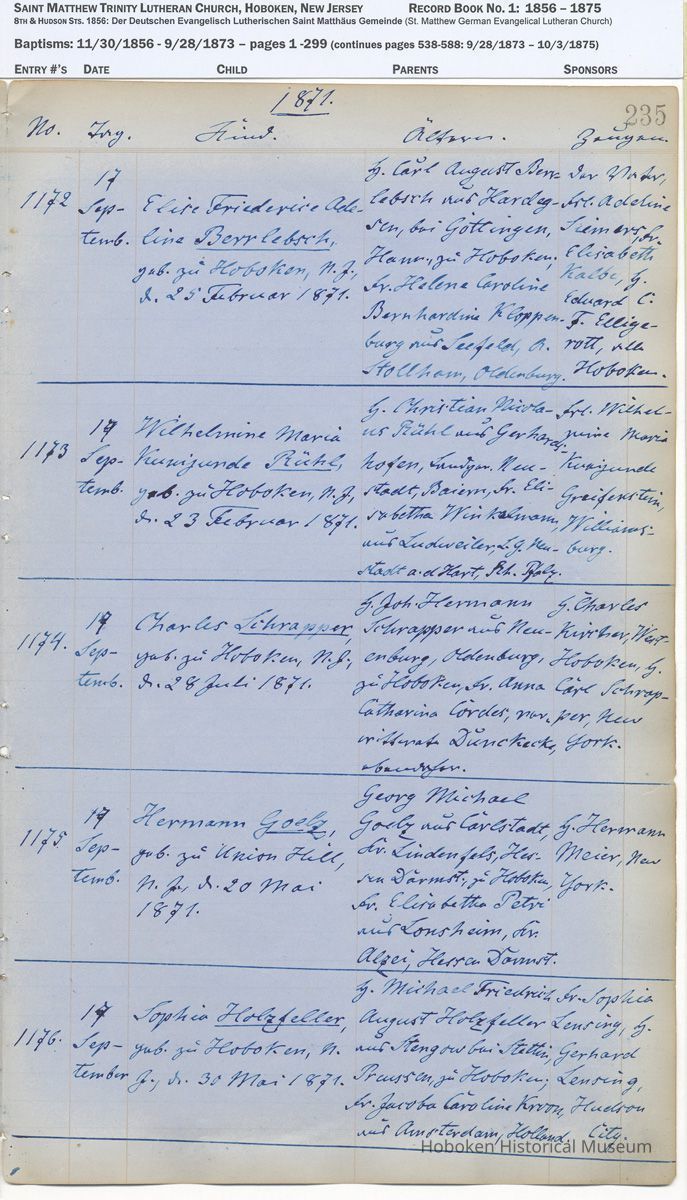 SAINT MATTHEW TRINITY LUTHERAN CHURCH, HOBOKEN, NEW JERSEY RECORD BOOK NO. 1: 1856 – 1875
8TH & HUDSON STS. 1856: Der Deutschen Evangelisch Lutherischen Saint Matthäus Gemeinde (St. Matthew German Evangelical Lutheran Church)
Baptisms: 11/30/1856 - 9/28/1873 – pages 1 -299 (continues pages 538-588: 9/28/1873 – 10/3/1875)
ENTRY #'S DATE CHILD PARENTS SPONSORS
1871.
235
No. Tag. Kind. Ältern. Zeugen.
1172
17
Sep-
temb.
Elise Friederice Ade-
line Berrlebsch,
geb. zu Hoboken, N. J.,
d. 25 Februar 1871.
H. Carl August Berr-
lebsch aus Hardeg-
sen, bei Göttingen,
Hann., zu Hoboken.
Fr. Helene Caroline
Bernhardine Kloppen-
burg aus Seefeld, A.
Stollham, Oldenburg.
Der Vater,
Frl. Adeline
Siemers, Fr.
Elisabeth
Kalbe, H.
Eduard C.
F. Ellige-
rott, alle
Hoboken.
1173
17
Sep-
temb.
Wilhelmine Maria
Kunigunde Rühl,
geb. zu Hoboken, N. J.,
d. 23 Februar 1871.
H. Christian Nicola-
us Rühl aus Gerhards-
hofen, Landger. Neu-
stadt, Baiern, Fr. Eli-
sabetha Winkelmann,
aus Ludweiler, L. G. Neu-
stadt a. d Hart, Rh. Pfalz.
Frl. Wilhel-
mine Maria
Kunigunde
Greifenstein,
Williams-
burg.
1174.
17
Sep-
temb.
Charles Schrapper,
geb. zu Hoboken, N. J.,
d. 28 Juli 1871.
H. Joh. Hermann
Schrapper aus Neu-
enburg, Oldenburg,
zu Hoboken, Fr. Anna
Catharina Cordes, ver-
wittwete Dunckacke,
ebendaher.
H. Charles
Kircher, West-
Hoboken, H.
Carl Schrap-
per, New
York.
1175.
17
Sep-
temb.
Hermann Goelz,
geb. zu Union Hill,
N. J., d. 20 Mai
1871.
Georg Michael
Goelz aus Carlstadt,
Kr. Lindenfels, Hes-
sen Darmst., zu Hoboken,
Fr. Elisabetha Petri
aus Lonsheim, Kr.
Alzei, Hessen Darmst.
H. Hermann
Meier, New
York.
1176.
17
Sep-
tember
Sophia Holzfeller,
geb. zu Hoboken, N.
J., d. 30 Mai 1871.
H. Michael Friedrich
August Holzfeller
aus Stengow bei Stettin,
Preussen, zu Hoboken,
Fr. Jacoba Caroline Kroon,
aus Amsterdam, Holland.
Fr. Sophia
Lensing, H.
Gerhard
Lensing,
Hudson
City.
Hoboken Historical Museum